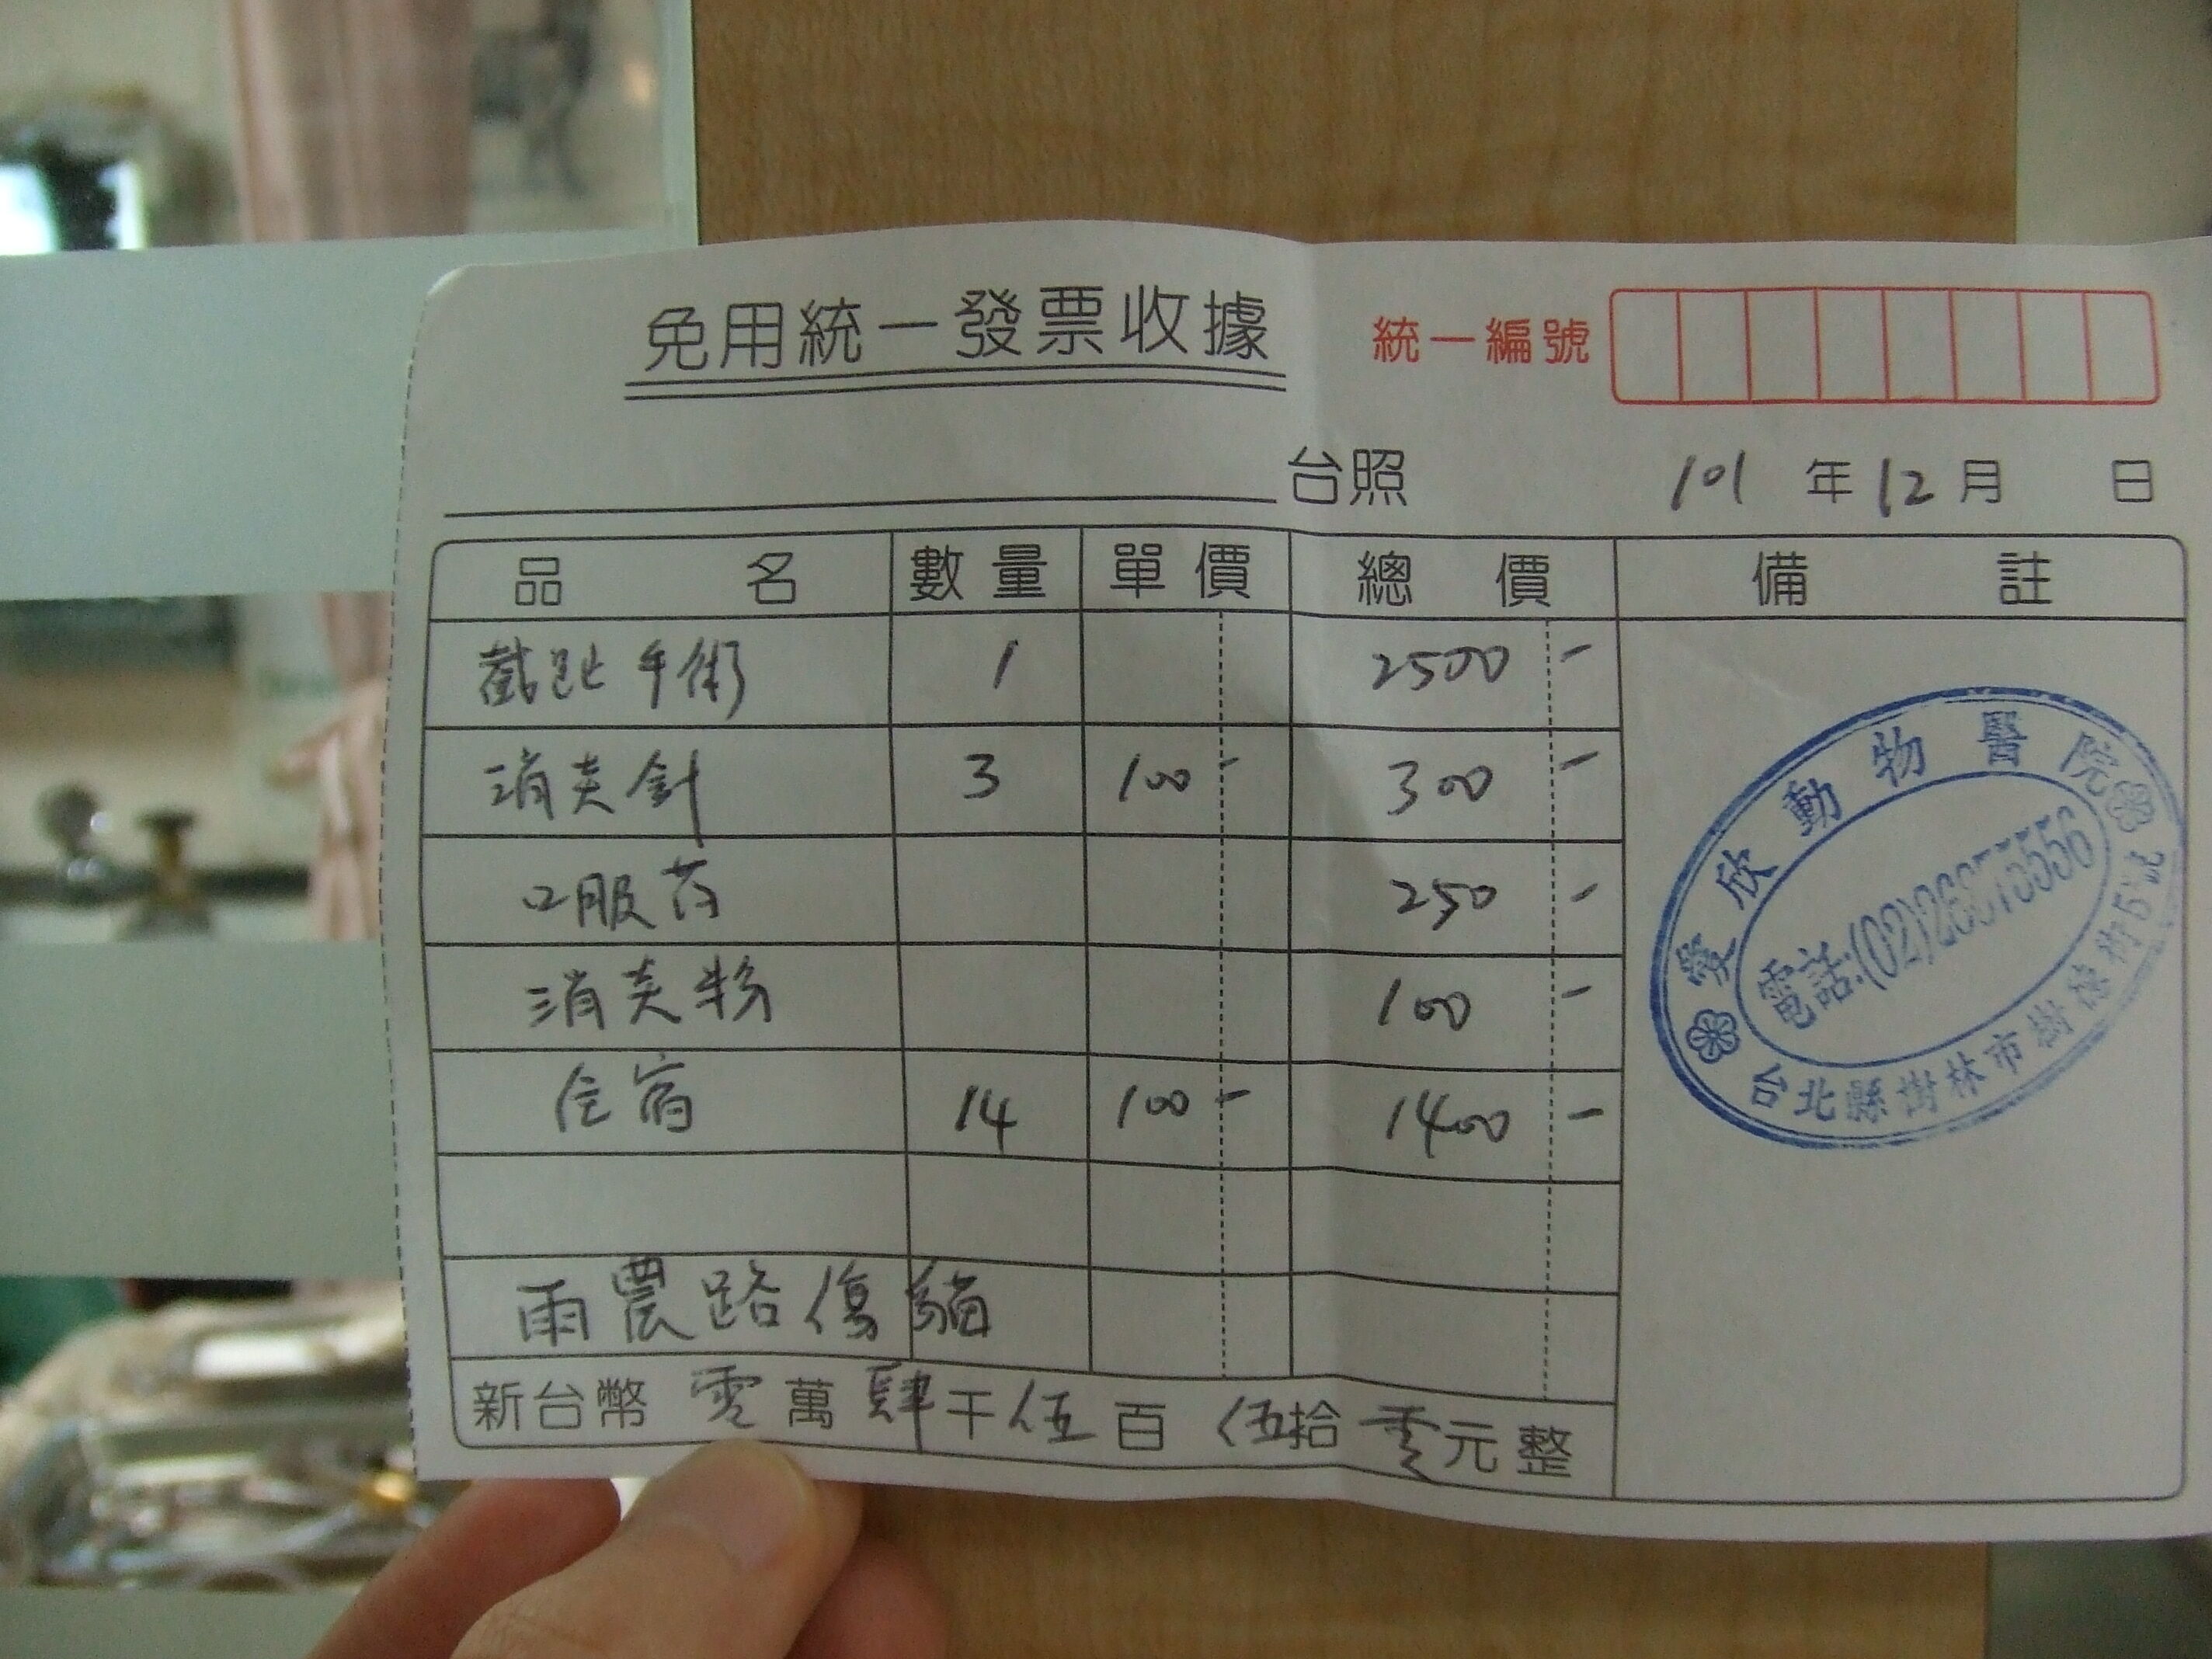 免用統一發票收據
統一編號
台照 101 年 12 月 日
品名 數量 單價 總價 備註
截趾手術 1 2500 -
消炎針 3 100 - 300 -
口服药 250 -
消炎粉 100 -
住宿 14 100 - 1400 -
雨農路傷貓
新台幣 零萬肆千伍百伍拾零元整
愛欣動物醫院
電話:(02)26875556
台北縣樹林市樹德街5號